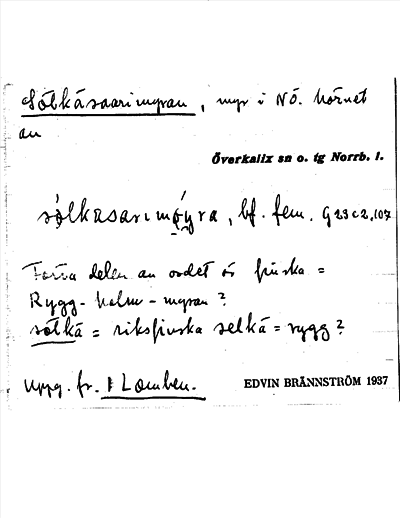 Sölkäsaarimyran, myr i NÖ. hörnet
av
Överkalix sn o. tg Norrb. l.
sölkasarimöyra, bf. fem. G 23 c 2, 107
Första delen av ordet är finska =
Rygg-holm-myran?
sölkä = riksfinska selkä = rygg?
Uppg. fr. Lomben.
EDVIN BRÄNNSTRÖM 1937